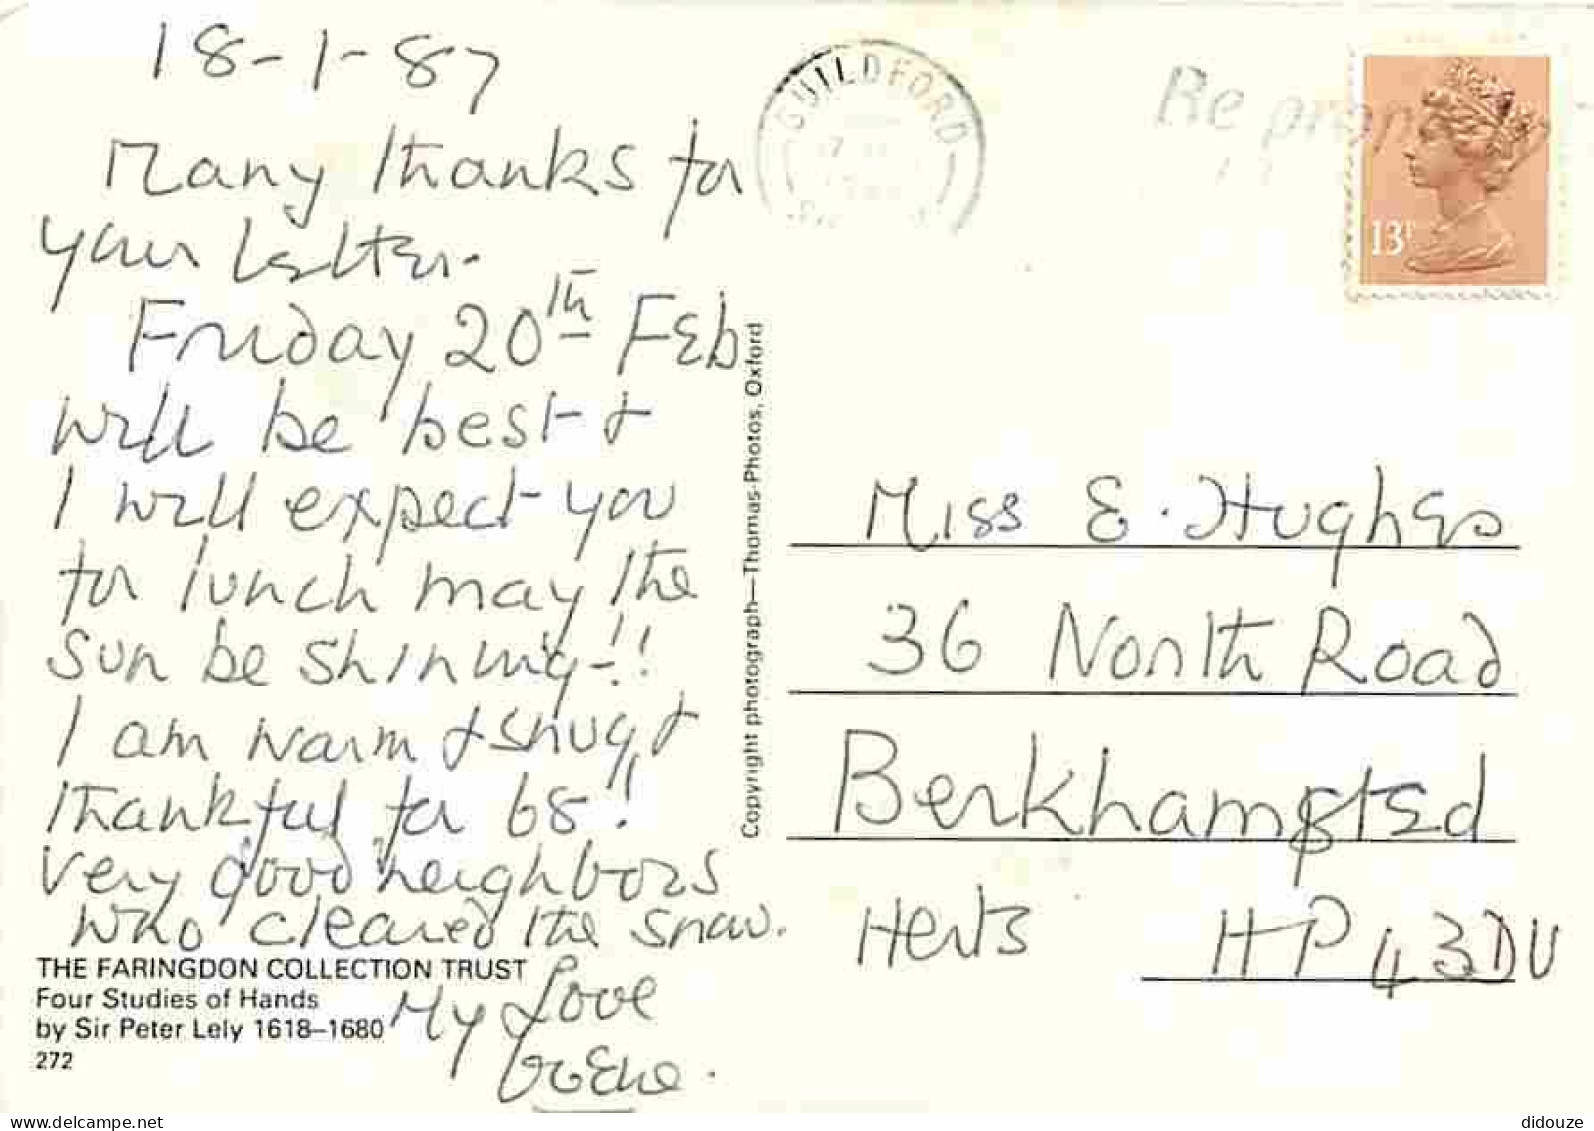 18-1-87
Many thanks for
your letter.
Friday 20th Feb
will be best &
I will expect you
for lunch may the
sun be shining!!
I am warm & snug &
thankful for 68!
Very good neighbors
who cleared the snow.
My Love
THE FARINGDON COLLECTION TRUST
Four Studies of Hands
by Sir Peter Lely 1618–1680
272
Copyright photograph—Thomas-Photos, Oxford
GUILDFORD
Be
13P
Miss E. Hughes
36 North Road
Berkhamsted
Herts HP4 3DU
delcampe.net
didouze